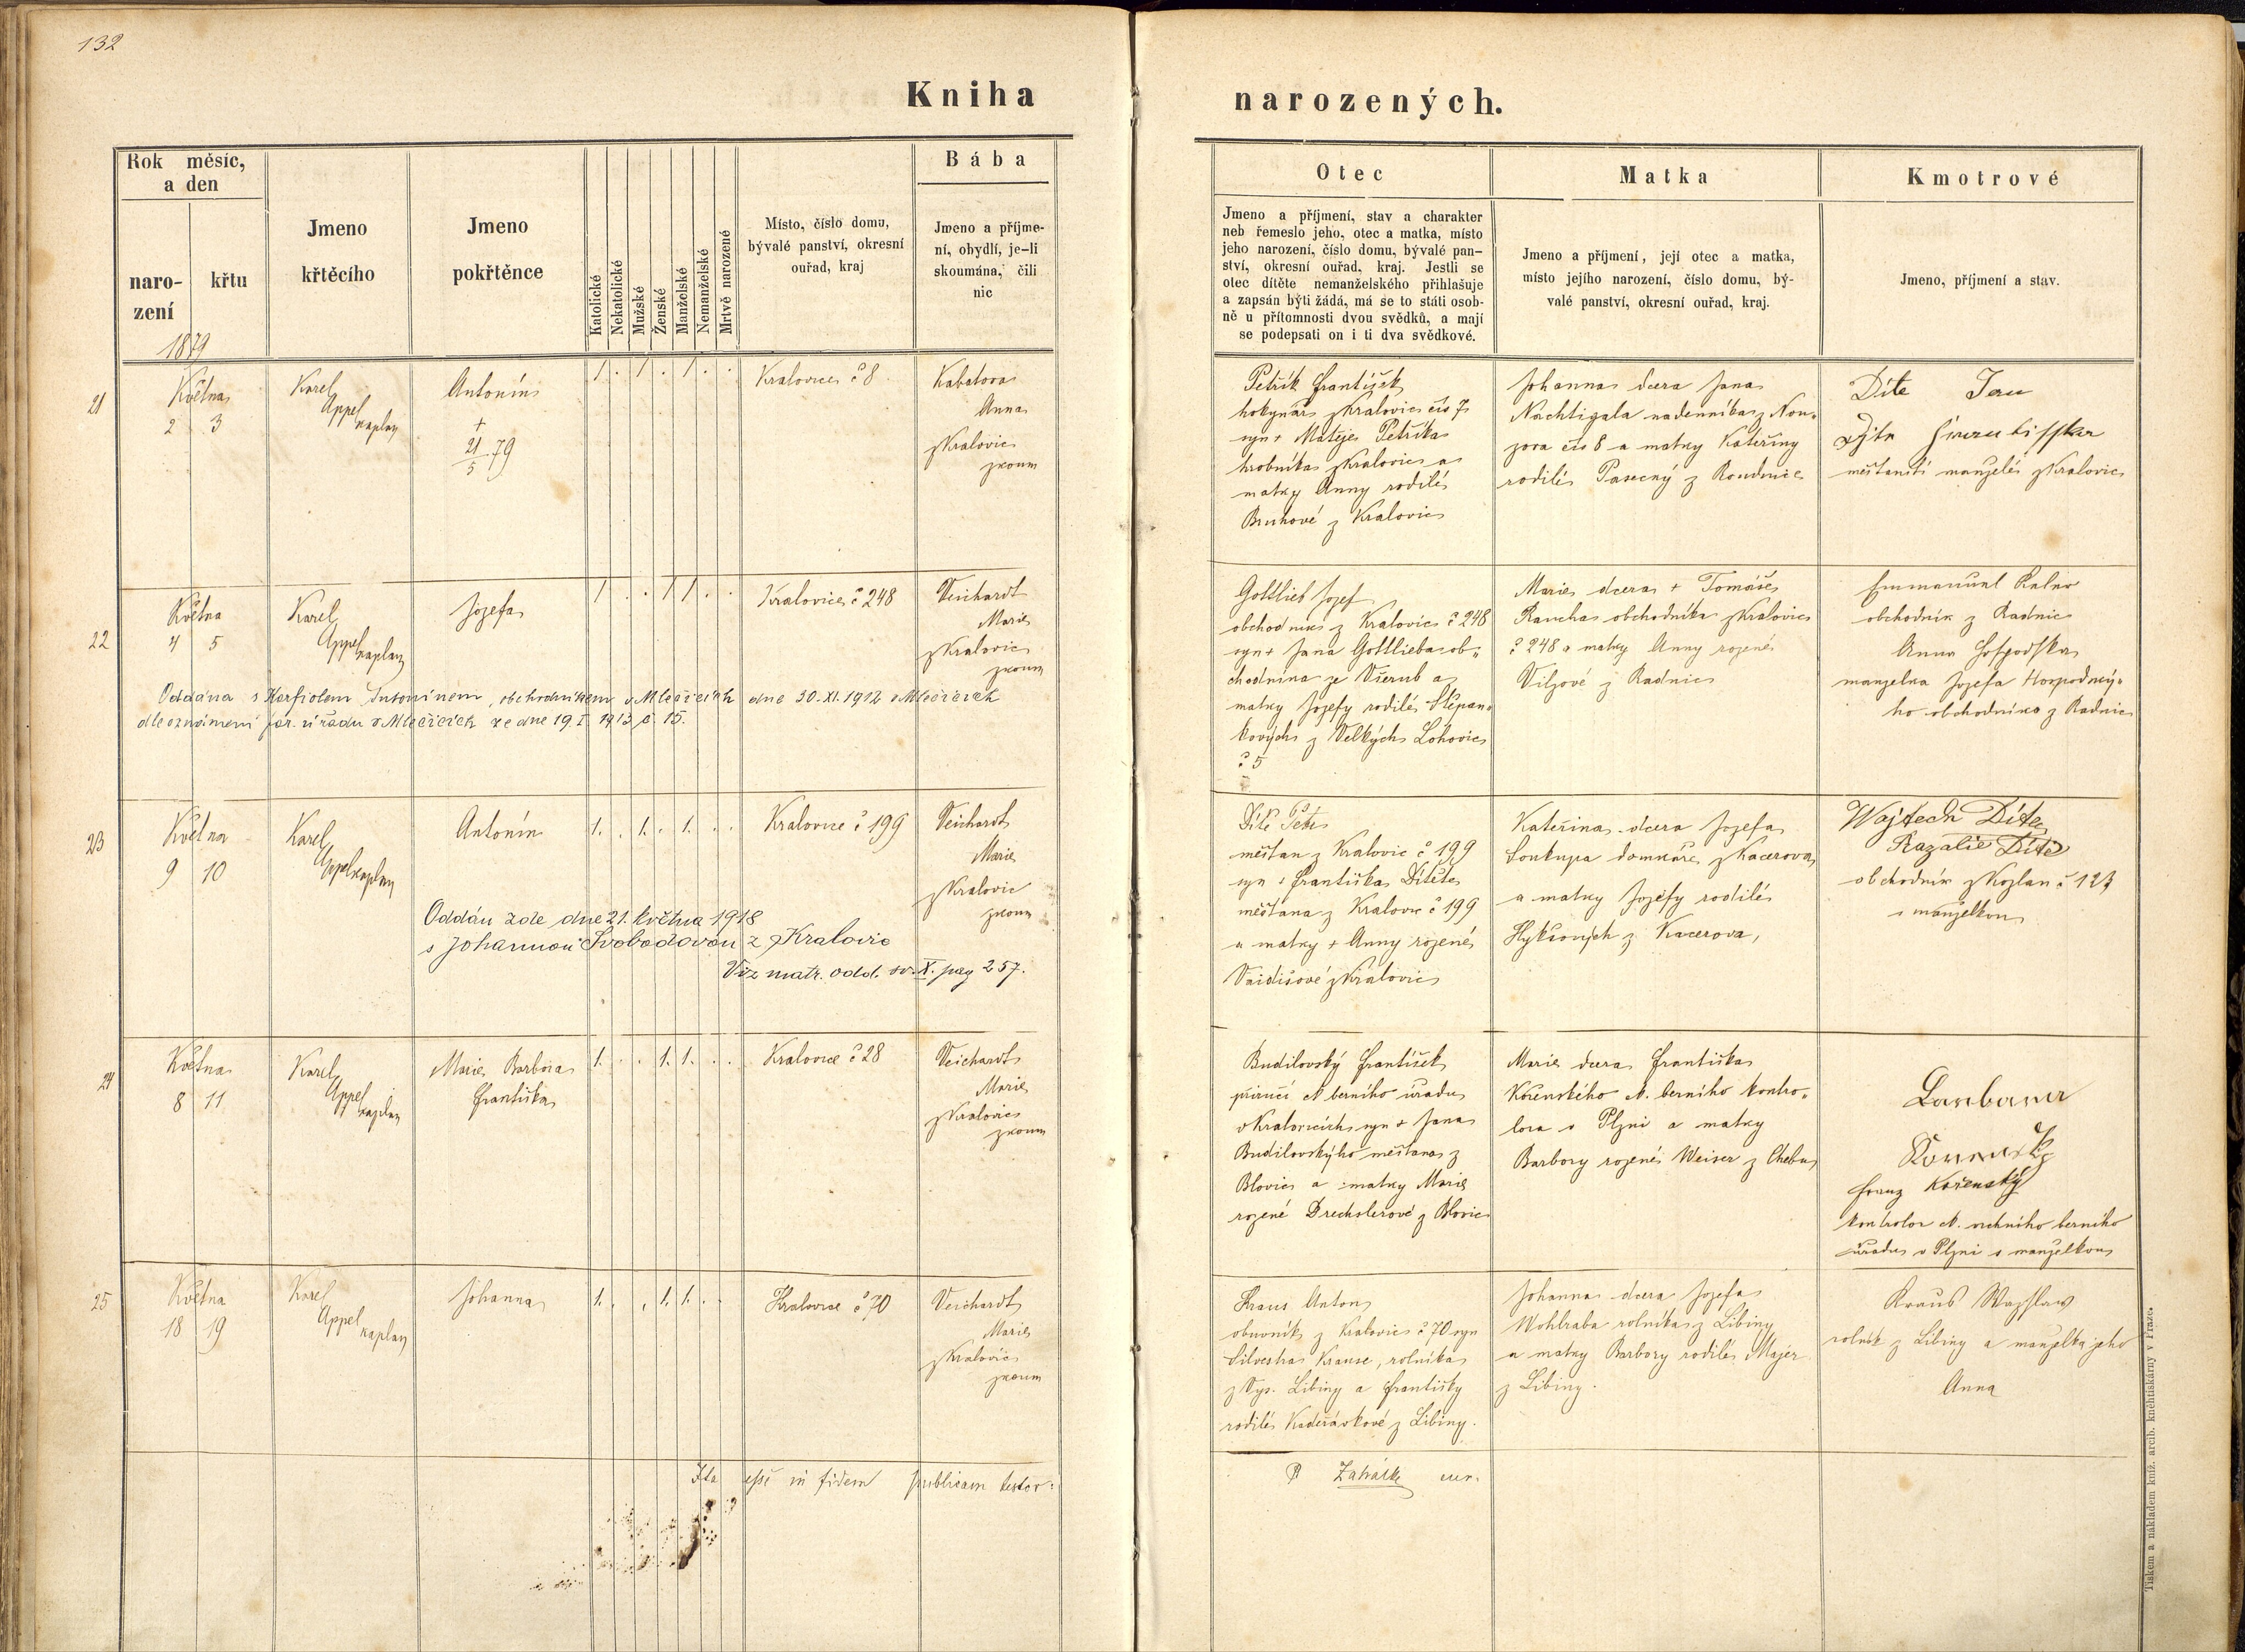 132
Kniha
narozených.
Rok měsíc,
a den
naro-
zení
křtu
1879
Jmeno
křtěcího
Jmeno
pokřtěnce
Katolické
Nekatolické
Mužské
Ženské
Manželské
Nemanželské
Mrtvě narozené
Místo, číslo domu,
bývalé panství, okresní
ouřad, kraj
Bába
Jmeno a příjme-
ní, obydlí, je-li
skoumána, čili
nic
Otec
Jmeno a příjmení, stav a charakter
neb řemeslo jeho, otec a matka, místo
jeho narození, číslo domu, bývalé pan-
ství, okresní ouřad, kraj. Jestli se
otec dítěte nemanželského přihlašuje
a zapsán býti žádá, má se to státi osob-
ně u přítomnosti dvou svědků, a mají
se podepsati on i ti dva svědkové.
Matka
Jmeno a příjmení, její otec a matka,
místo jejího narození, číslo domu, bý-
valé panství, okresní ouřad, kraj.
Kmotrové
Jmeno, příjmení a stav.
21
Května
2 3
Karel
Appel
kaplan
Antonín
+
21/5 79
1 . 1 . 1 . .
Kralovice č 8
Kabatova
Anna
z Kralovic
zkoum
Petřík František
hokynář z Kralovic čís 7
syn + Matěje Petříka
hrobníka z Kralovic a
matky Anny rodilé
z Kralovic
Johanna dcera Jana
Nachtigala nadenníka z Kon-
čís 8 a matky Kateřiny
rodilé Pasecný z Roudnice
Díte Jan
měštanští manželé z Kralovic
22
Května
4 5
Karel
Appel
kaplan
Jozefa
1 . . 1 1 . .
Kralovice č 248
Veichardt
Marie
z Kralovic
zkoum
Oddána s Herfiolem Antonínem, obchodníkem v Mlečicích dne 30. XI. 1912 v Mlečicích
dle oznámení far. úřadu v Mlečicích ze dne 19. I. 1913 č. 15.
Gottlieb Jozef
obchodník z Kralovic č 248
syn + Jana Gottlieba ob-
chodníka ze Všerub a
matky Jozefy rodilé Štěpan-
kových z Velkých Lohovic
č 5
Marie dcera + Tomáše
Raucha obchodníka z Kralovic
č 248 a matky Anny rozené
Vilzové z Radnic
Emmanuel
obchodník z Radnic
Anna
manzelka Jozefa Hospodský-
ho obchodníka z Radnic
23
Května
9 10
Karel
Appel kaplan
Antonín
1. . 1. . 1. . .
Kralovice č 199
Veichardt
Marie
z Kralovic
zkoum
Oddán zde dne 21. května 1918
s Johannou Svobodovou z Kralovic
Viz matr. odd. sv. X. pag 257.
Dítě Petr
měštan z Kralovic č 199
syn + Františka Dítěte
měštana z Kralovic č 199
a matky + Anny rozené
Vaidišové z Kralovic
Kateřina dcera Jozefa
Soukupa domkáře z Kacerova
a matky Jozefy rodilé
Hykšových z Kacerova,
Wojtech Díte
Razalie Díte
obchodník z Kožlan č 123
s manželkou
24
Května
8 11
Karel
Appel
kaplan
Marie Barbora
Františka
1. . . 1. 1. . .
Kralovice č 28
Veichardt
Marie
z Kralovic
zkoum
Budilovský František
příručí berního úřadu
v Kralovicích syn + Jana
Budilovského měštana z
Blovic a matky Marie
rozené Drechslerové z Blovic
Marie dcera Františka
Kořenského berního kontro-
lora v Plzni a matky
Barbory rozené Weiser z Chebu
Barbara
Franz Kořenský
kontrolor berního
úřadu v Plzni s manželkou
25
Května
18 19
Karel
Appel
kaplan
Johanna
1. . . 1. 1. . .
Kralovice č 70
Veichardt
Marie
z Kralovic
zkoum
Kraus Anton
obuvník z Kralovic č 70 syn
Silvestra Krause, rolníka
z Vys. Libiny a Františky
rodilé Kadeřávkové z Libiny.
Johanna dcera Jozefa
Wohlraba rolníka z Libiny
a matky Barbory rodilé Majer
z Libiny.
Kraus Wazslaw
rolník z Libiny a manželka jeho
Anna
Ita esse in fidem publicam testor:
P Zahálka cur.
Tiskem a nákladem kníž. arcib. knihtiskárny v Praze.